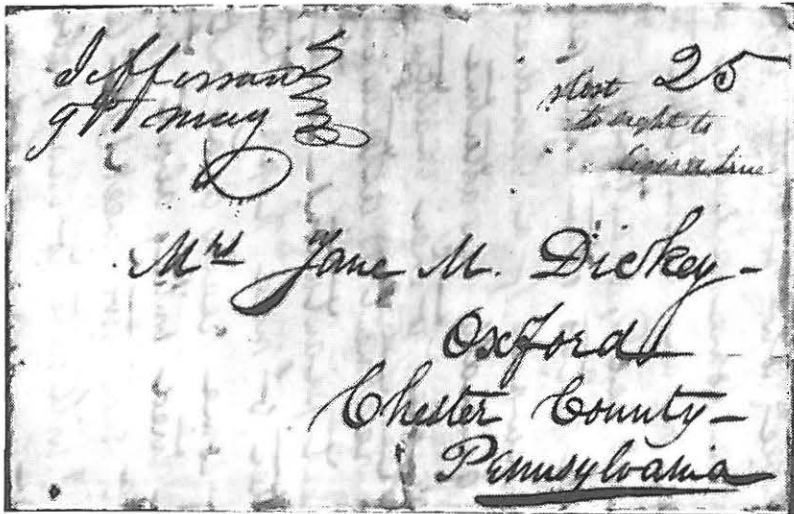 Jefferson
9th May
25
Mrs Jane M. Dickey-
Oxford
Chester County-
Pennsylvania